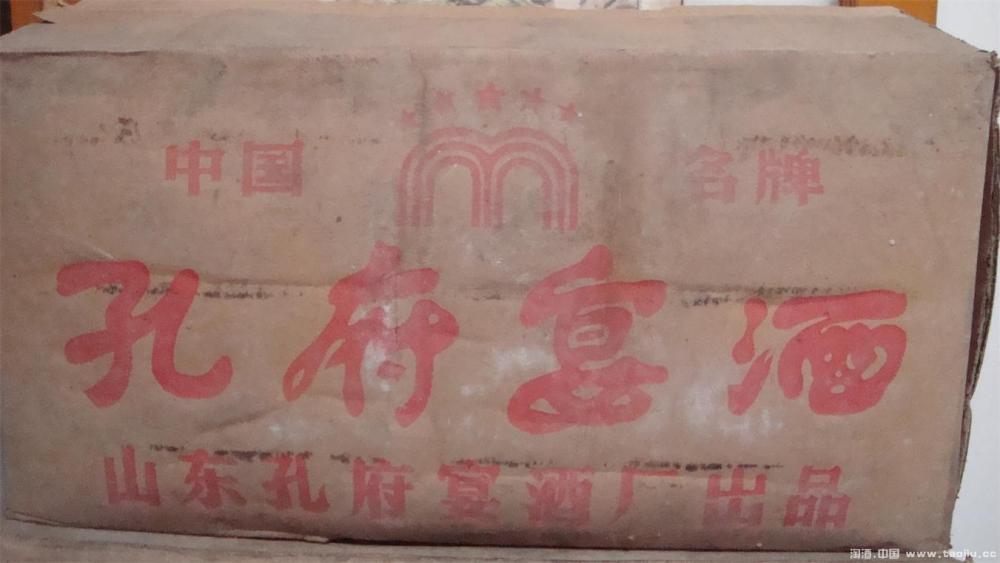 中国 名牌
孔府宴酒
山东孔府宴酒厂出品
淘酒.中国 www.taojiu.cc